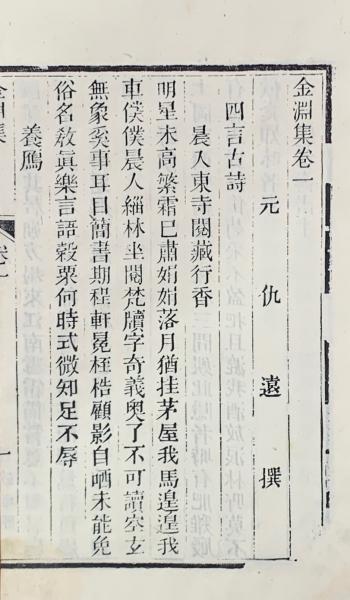 金淵集卷一
元仇遠撰
四言古詩
晨入東寺閱藏行香
明星未高繁霜已肅娟娟落月猶挂茅屋我馬遑遑我
車僕僕晨入緇林坐閱梵牘字奇義奧了不可讀空玄
無象奚事耳目簡書期程軒冕桎梏顧影自哂未能免
俗名敎眞樂言語穀粟何時式微知足不辱
養鷹